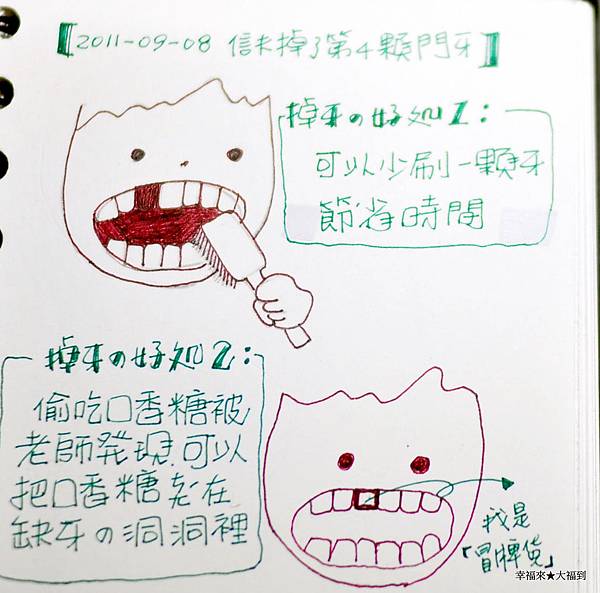 【2011-09-08 信未掉了第4顆門牙】
掉牙の好処1:
可以少刷一顆牙
節省時間
掉牙の好処2:
偷吃口香糖被
老師發現可以
把口香糖 在
缺牙の洞洞裡
我是
「冒牌貨」
幸福來★大福到